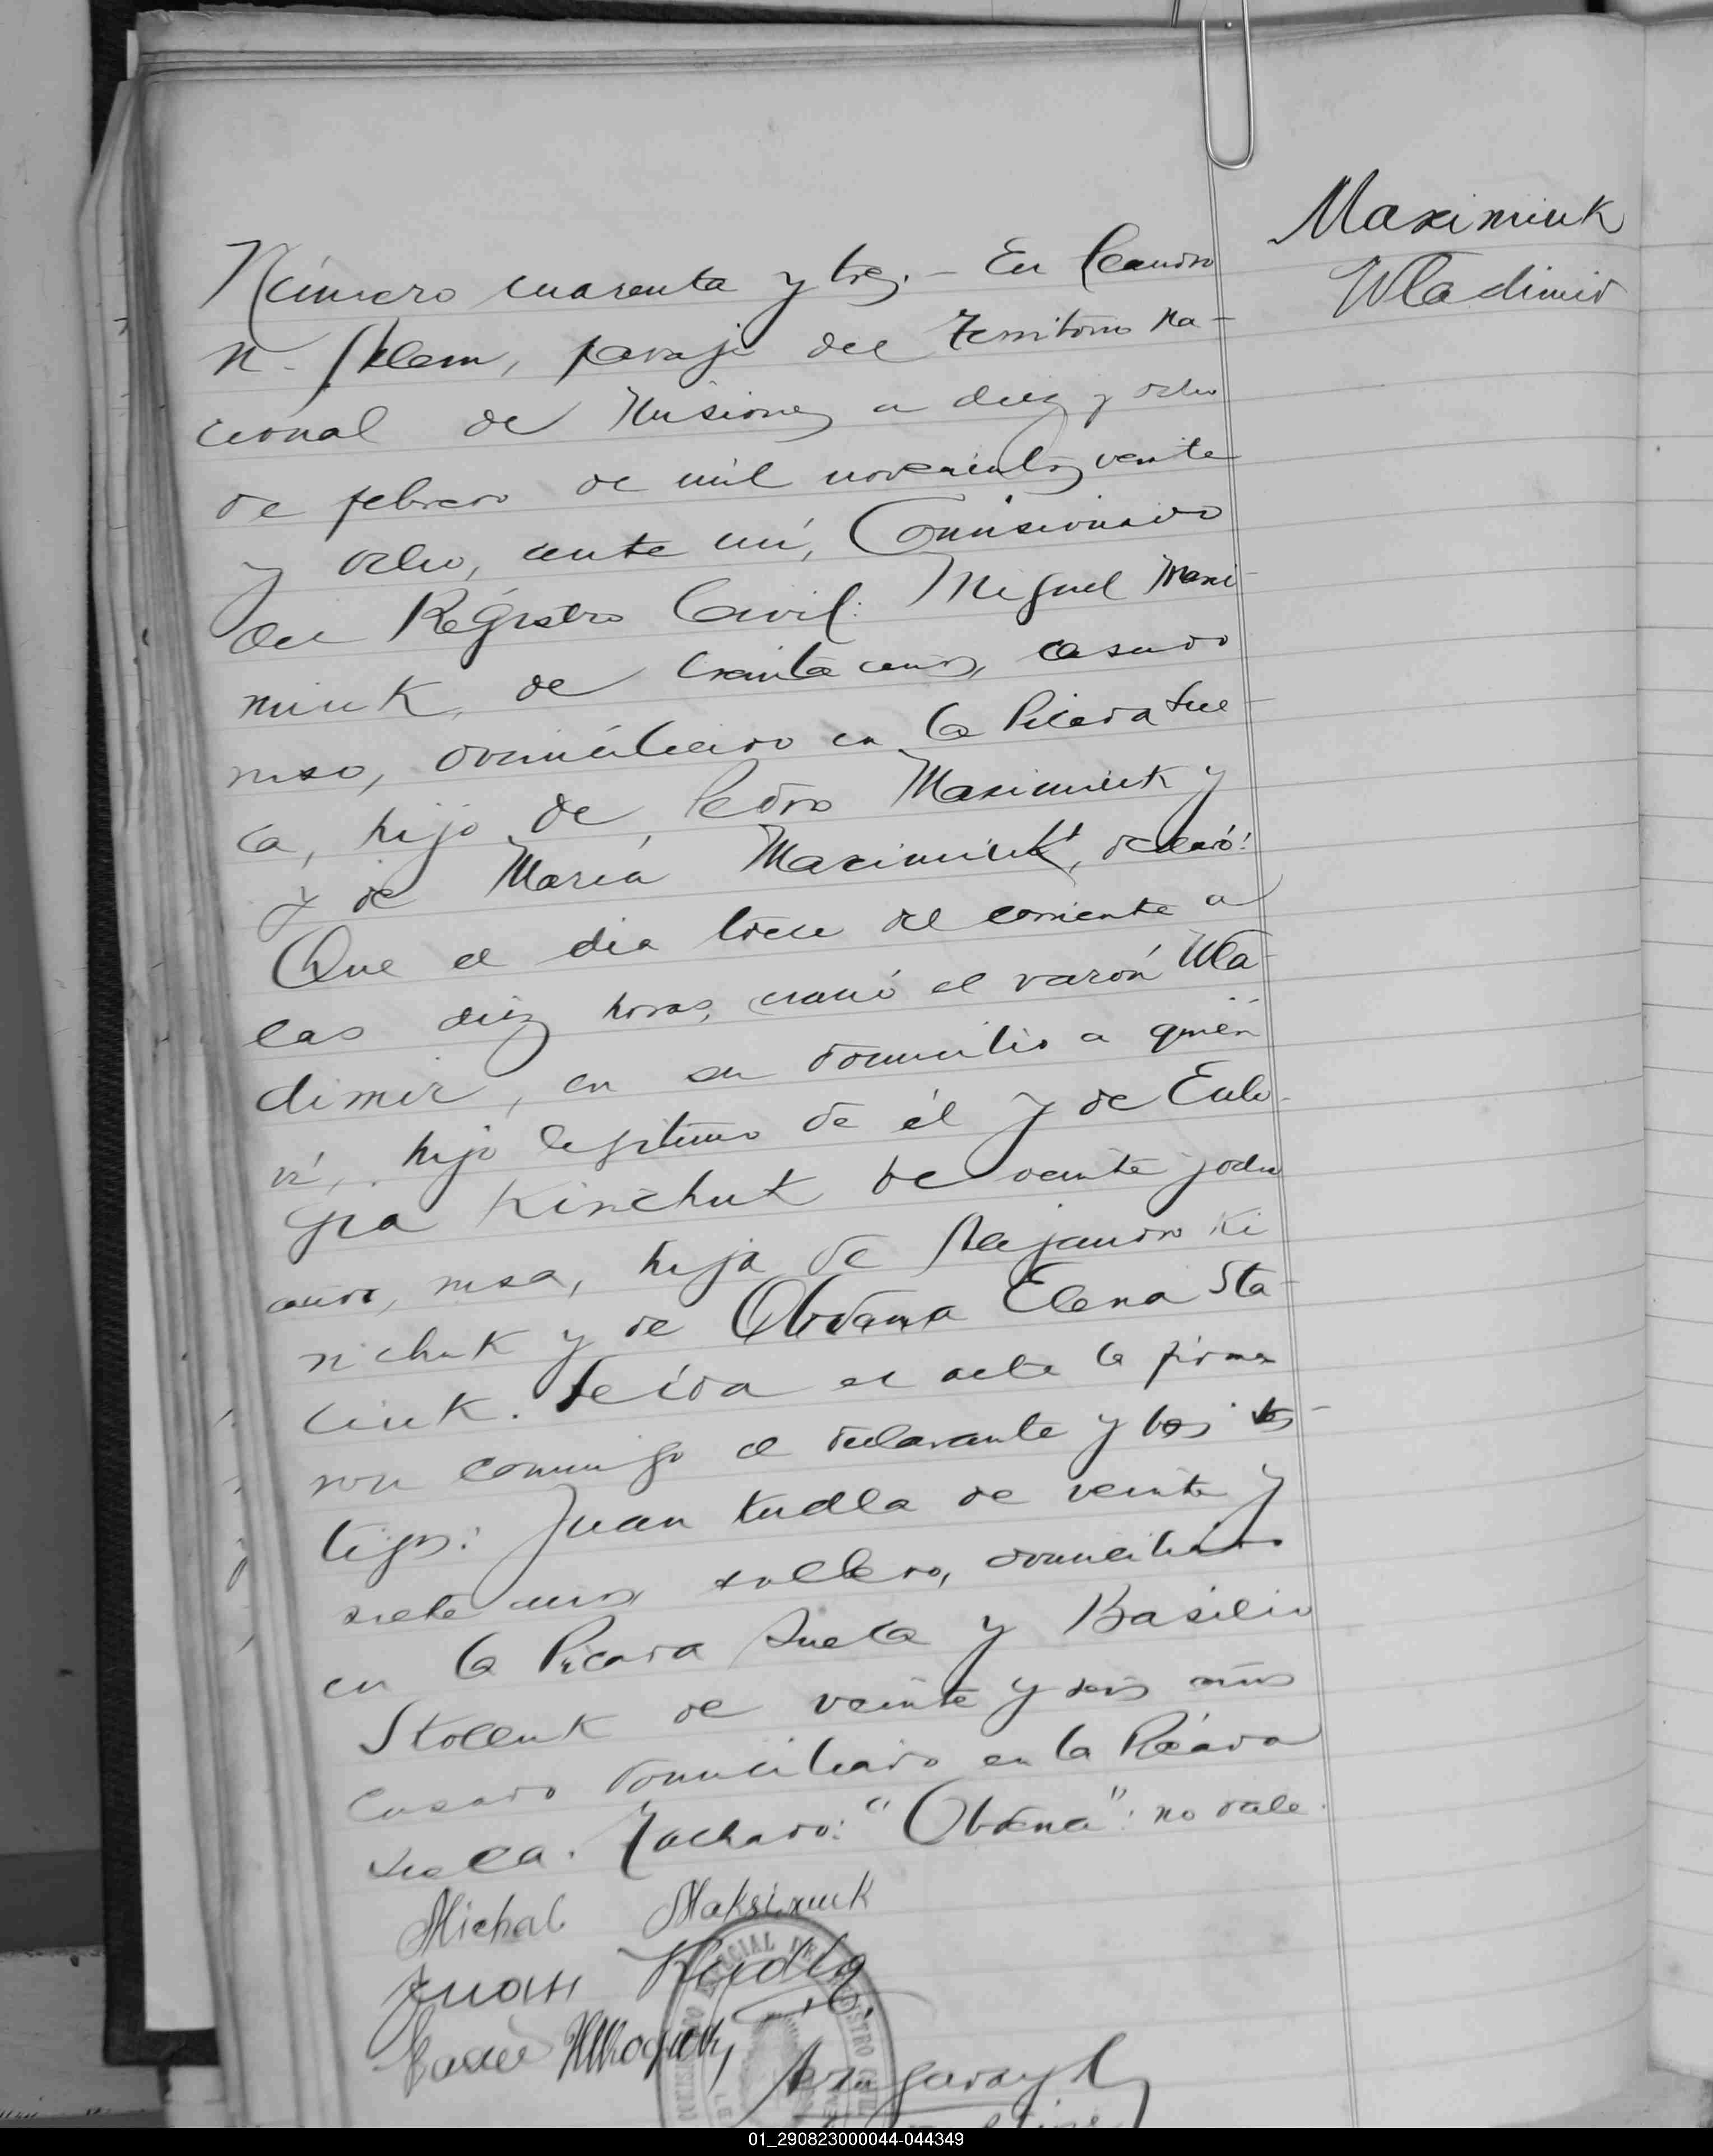 Maximiuk
Wladimir
Número cuarenta y tres.- En Leandro
N. Alem, paraje del Territorio Na-
cional de Misiones a diez y ocho
de febrero de mil novecientos veinte
y ocho, ante mí, Comisionado
del Registro Civil: Miguel Maxi-
miuk, de treinta años, casado
ruso, domiciliado en la Picada Sue-
ca, hijo de Pedro Maximiuk y
y de María Maximiuk, declaró:
Que el dia trece del corriente a
las diez horas, nació el varón Wla-
dimir, en su domicilio a quien
ví, hijo legítimo de él y de Eulo-
gia Kirichuk de veinte y ocho
años, rusa, hija de Alejandro Ki
richuk y de Obdama Elena Sta-
ciuk. Leída el acta la firma
ron conmigo el declarante y los tes-
tigos: Juan Kudla de veinte y
siete años soltero, domiciliado
en la Picada Sueca y Basilio
Stoceuk de veinte y seis años
casado domiciliado en la Picada
Sueca. Tachado: "Obdena": no vale.
Michal Maksimiuk
Juan Kudla
01_290823000044-044349